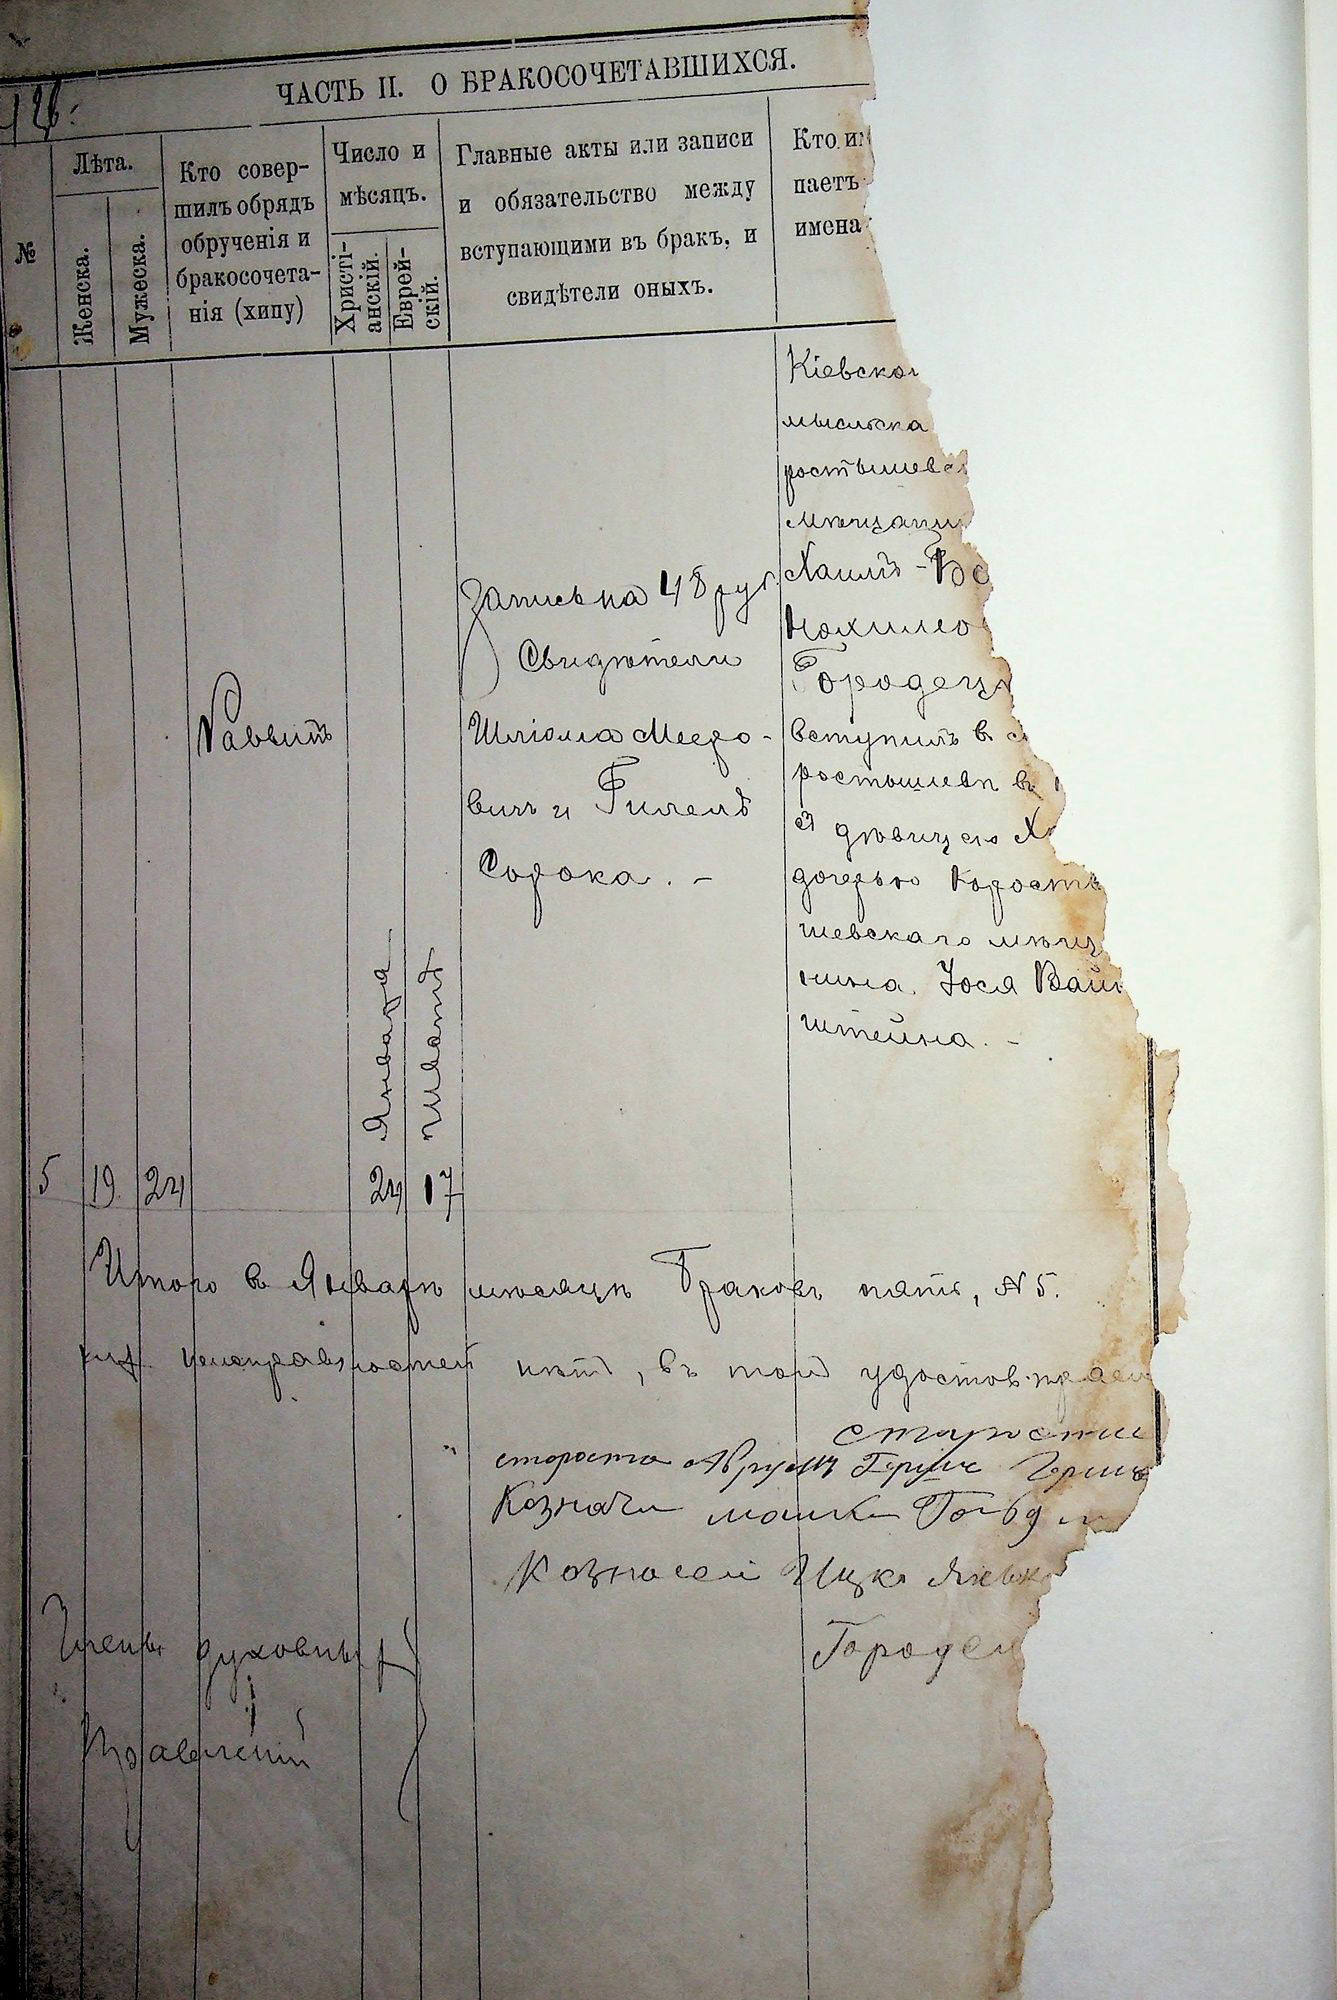 ЧАСТЬ II. О БРАКОСОЧЕТАВШИХСЯ.
№
Лѣта.
Женска.
Мужеска.
Кто совер-
шилъ обрядъ
обрученія и
бракосочета-
нія (хипу)
Число и
мѣсяцъ.
Христі-
анскій.
Еврей-
скій.
Главные акты или записи
и обязательство между
вступающими въ бракъ, и
свидѣтели оныхъ.
Кто
паетъ
имена
5
19
24
Раввинъ
Января
24
Шватъ
17
Запись на 48 руб.
Свидѣтели
Шліома Мееро-
вичъ и Гилелъ
Сорока. -
Кіевско
ростышевс
мѣщани
Хаимъ-Бе
Нохимо
Городец
вступилъ в
ростышевѣ в
дѣвицею Х
дочерью Корост
шевскаго мѣщ
нина Іося Вай
штейна. -
Итого в Январѣ мѣсяцѣ браковъ пять, №5.
неисправностей нѣтъ, въ томъ удостовѣряем
староста
Казначей Ицко Янк
Городе
Члены духовны
Правленій